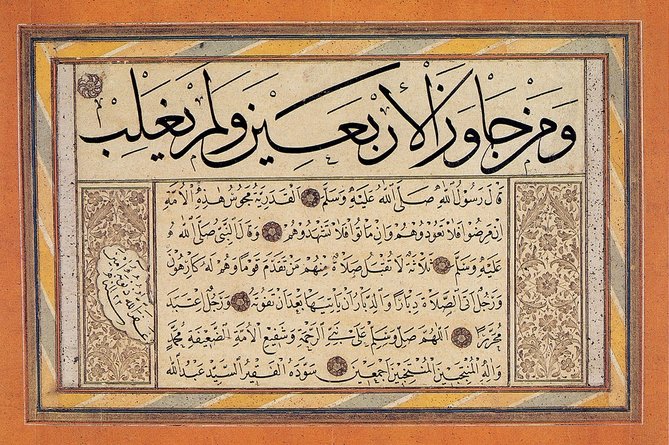 ومن جاوز الأربعين ولم يغلب
قَالَ رَسُولُ اللهِ صَلَّى اللهُ عَلَيْهِ وَسَلَّمَ اَلْقَدَرِيَّةُ مَجُوسُ هٰذِهِ الْاُمَّةِ
اِنْ مَرِضُوا فَلَا تَعُودُوهُمْ وَاِنْ مَاتُوا فَلَا تَشْهَدُوهُمْ وَقَالَ النَّبِيُّ صَلَّى اللهُ
عَلَيْهِ وَسَلَّمَ ثَلَاثَةٌ لَا تُقْبَلُ صَلَاةٌ مِنْهُمْ مَنْ تَقَدَّمَ قَوْمًا وَهُمْ لَهُ كَارِهُونَ
وَرَجُلٌ اَتَى الصَّلَاةَ دِبَارًا وَالدِّبَارُ اَنْ يَأْتِيَهَا بَعْدَ اَنْ تَفُوتَهُ وَرَجُلٌ اعْتَبَدَ
مُحَرَّرًا اَللّٰهُمَّ صَلِّ وَسَلِّمْ عَلٰى نَبِيِّ الرَّحْمَةِ وَشَفِيعِ الْاُمَّةِ الضَّعِيفَةِ مُحَمَّدٍ
وَاٰلِهِ الْمُنْتَجَبِينَ اَجْمَعِينَ سَوَّدَهُ الْفَقِيرُ السَّيِّدُ عَبْدُ اللهِ